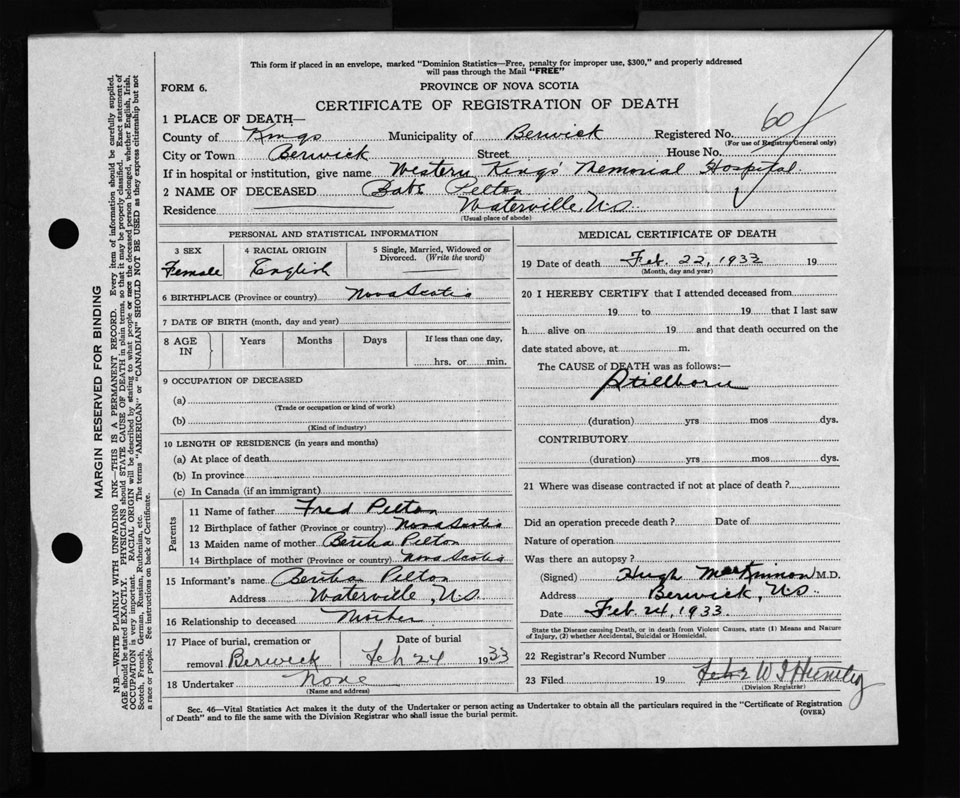 This form if placed in an envelope, marked "Dominion Statistics—Free, penalty for improper use, $300," and properly addressed
will pass through the Mail "FREE"
FORM 6.
PROVINCE OF NOVA SCOTIA
CERTIFICATE OF REGISTRATION OF DEATH
1 PLACE OF DEATH—
County of Kings Municipality of Berwick Registered No. 60
(For use of Registrar General only)
City or Town Berwick Street House No.
If in hospital or institution, give name Western Kings' Memorial Hospital.
2 NAME OF DECEASED Pelton
Residence Waterville, N.S.
(Usual place of abode)
PERSONAL AND STATISTICAL INFORMATION
3 SEX 4 RACIAL ORIGIN 5 Single, Married, Widowed or
Divorced. (Write the word)
Female English
6 BIRTHPLACE (Province or country) Nova Scotia
7 DATE OF BIRTH (month, day and year)
8 AGE Years Months Days If less than one day,
IN
hrs. or min.
9 OCCUPATION OF DECEASED
(a)
(Trade or occupation or kind of work)
(b)
(Kind of industry)
10 LENGTH OF RESIDENCE (in years and months)
(a) At place of death
(b) In province
(c) In Canada (if an immigrant)
Parents
11 Name of father Fred Pelton
12 Birthplace of father (Province or country) Nova Scotia
13 Maiden name of mother Bertha Pelton
14 Birthplace of mother (Province or country) Nova Scotia
15 Informant's name Bertha Pelton
Address Waterville, N.S.
16 Relationship to deceased Mother
17 Place of burial, cremation or Date of burial
removal Berwick Feb 24 1933
18 Undertaker None
(Name and address)
MEDICAL CERTIFICATE OF DEATH
19 Date of death Feb. 22, 1933 19
(Month, day and year)
20 I HEREBY CERTIFY that I attended deceased from
19 to 19 that I last saw
h alive on 19 and that death occurred on the
date stated above, at m.
The CAUSE of DEATH was as follows:—
Stillborn
(duration) yrs mos dys.
CONTRIBUTORY
(duration) yrs mos dys.
21 Where was disease contracted if not at place of death?
Did an operation precede death? Date of
Nature of operation
Was there an autopsy?
(Signed) Hugh MacKinnon M.D.
Address Berwick, N.S.
Date Feb. 24, 1933.
State the Disease causing Death, or in death from Violent Causes, state (1) Means and Nature
of Injury, (2) whether Accidental, Suicidal or Homicidal.
22 Registrar's Record Number
23 Filed 19
(Division Registrar)
Sec. 46—Vital Statistics Act makes it the duty of the Undertaker or person acting as Undertaker to obtain all the particulars required in the "Certificate of Registration
of Death" and to file the same with the Division Registrar who shall issue the burial permit.
(OVER)
MARGIN RESERVED FOR BINDING
N.B.—WRITE PLAINLY WITH UNFADING INK—THIS IS A PERMANENT RECORD. Every item of information should be carefully supplied.
AGE should be stated EXACTLY. PHYSICIANS should STATE CAUSE OF DEATH in plain terms, so that it may be properly classified. Exact statement of
OCCUPATION is very important. RACIAL ORIGIN will be described by stating to what people or race the deceased person belonged, whether English, Irish,
Scotch, French, German, Russian, Ruthenian, etc. The terms "AMERICAN" or "CANADIAN" SHOULD NOT BE USED as they express citizenship but not
a race or people. See instructions on back of Certificate.